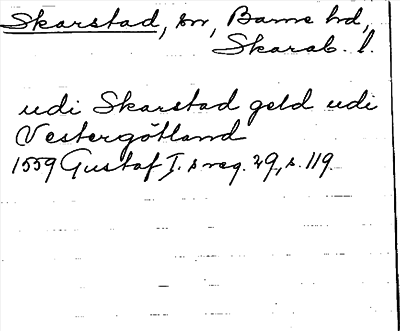 Skarstad, sn, Barne hd,
Skarab. l.
udi Skarstad geld udi
Vestergötland
1559 Gustaf I.s reg. 29, s. 119.